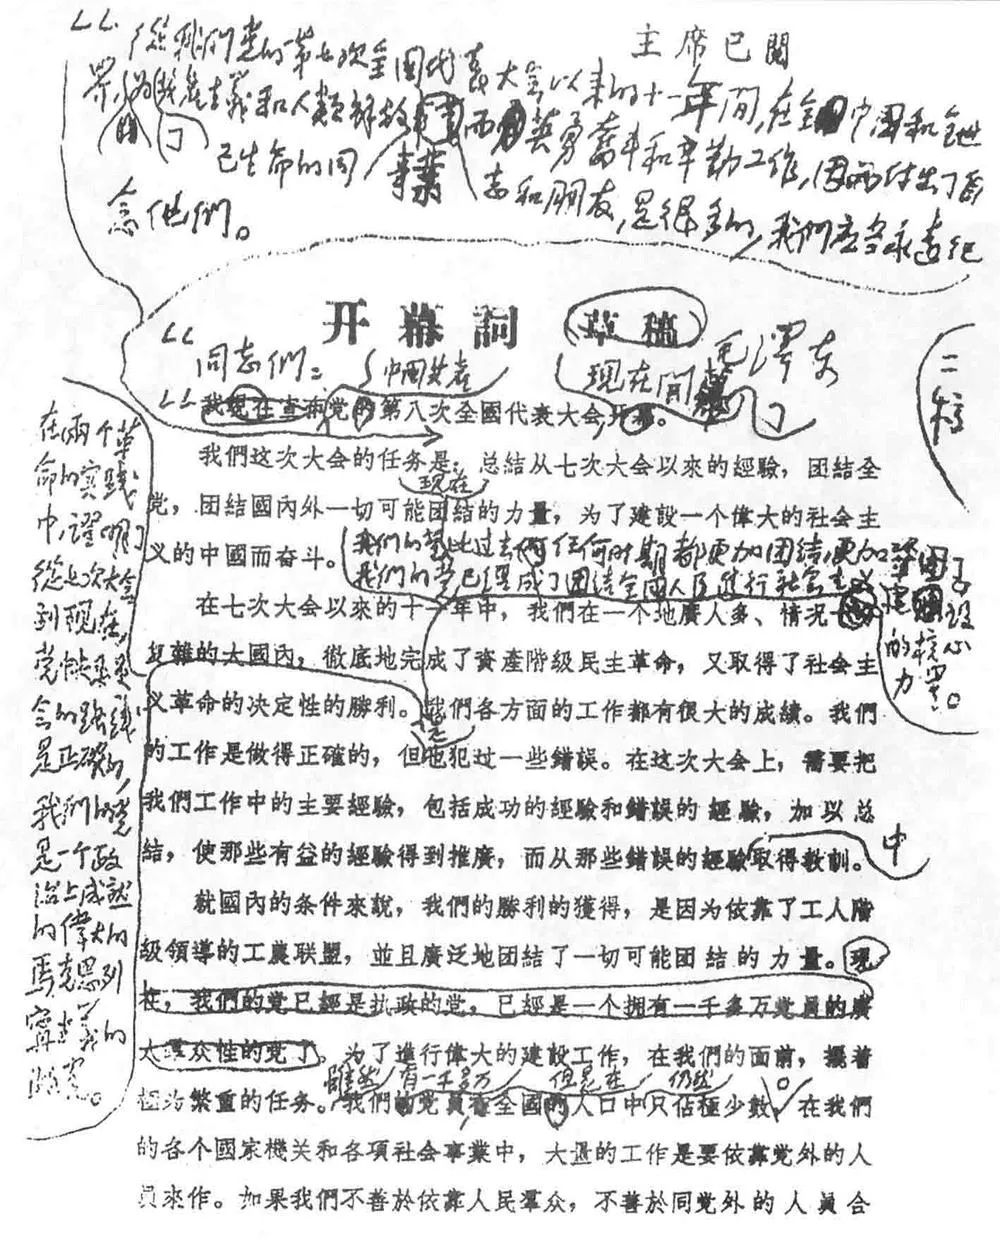 主席已閱
從我們党的第七次全国代表大会以来的十一年間,在全中国和全世
界,为共產主義和人類解放事業而英勇奮斗和辛勤工作,因而付出了自
己生命的同志和朋友,是很多的,我們应当永遠紀
念他們。
开幕詞 草稿
毛澤东
二校
同志們:
中國共產
現在開幕了
我現在宣布党的第八次全國代表大会开幕。
我們这次大会的任务是:总結从七次大会以來的經驗,团結全
現在
党,团結國內外一切可能团結的力量,为了建設一个偉大的社会主
义的中國而奋斗。
我們的党比过去任何时期都更加团結,更加鞏固了
我們的党已經成了团結全國人民進行社会主义建設的核心力量。
在七次大会以來的十一年中,我們在一个地廣人多、情况
复雜的大國內,徹底地完成了資產階級民主革命,又取得了社会主
义革命的决定性的勝利。我們各方面的工作都有很大的成績。我們
的工作是做得正確的,但也犯过一些錯誤。在这次大会上,需要把
我們工作中的主要經驗,包括成功的經驗和錯誤的經驗,加以总
結,使那些有益的經驗得到推廣,而从那些錯誤的經驗取得教訓。
中
就國內的条件來說,我們的勝利的獲得,是因为依靠了工人階
級領導的工農联盟,並且廣泛地团結了一切可能团結的力量。現
在,我們的党已經是执政的党,已經是一个拥有一千多万党員的廣
大羣众性的党了。为了進行偉大的建設工作,在我們的面前,擺着
雖然 有一千多万 但是在 仍然
極为繁重的任务。我們的党員在全國的人口中只佔極少數,在我們
的各个國家機关和各項社会事業中,大量的工作是要依靠党外的人
員來作。如果我們不善於依靠人民羣众,不善於同党外的人員合
在兩个革
命的实踐
中,證明了
從七次大会
到現在,
党中央委員
会的路綫
是正確的,
我們的党
是一个政
治上成熟
的偉大的
馬克思列
寧主義的
政党。